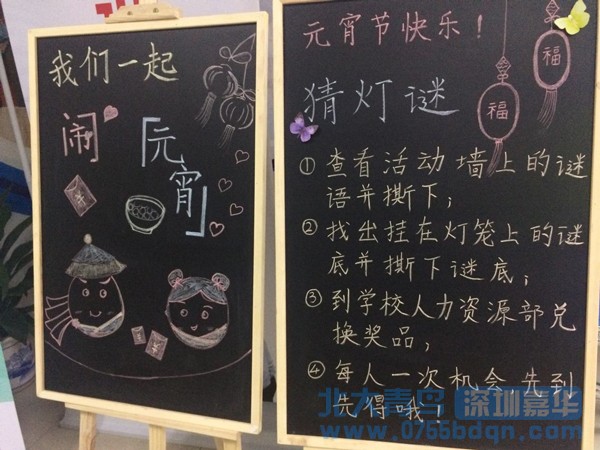 我们一起
闹「元宵」
元宵节快乐！
福
福
猜灯谜
①查看活动墙上的谜
语并撕下；
②找出挂在灯笼上的谜
底并撕下谜底；
③到学校人力资源部兑
换奖品；
④每人一次机会，先到
先得哦！
北大青鸟 深圳嘉华
www.0755bdqn.com